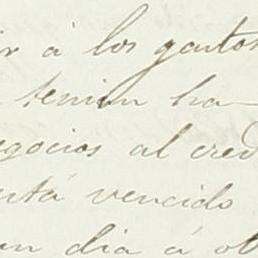 ir á los gastos
tenian ha-
egocios al cred
está vencido
un dia á ot